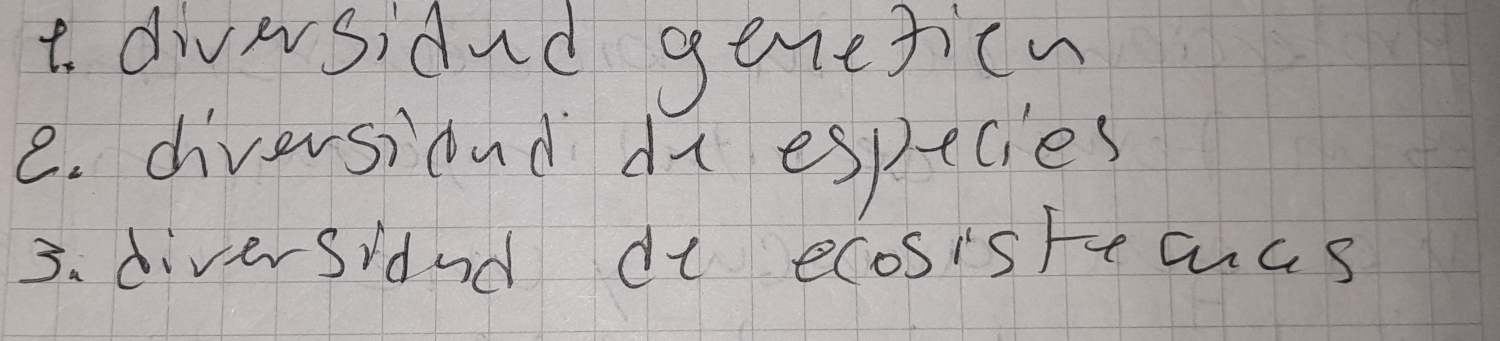 1. diversidad genetica
2. diversidad de especies
3. diversidad de ecosistemas